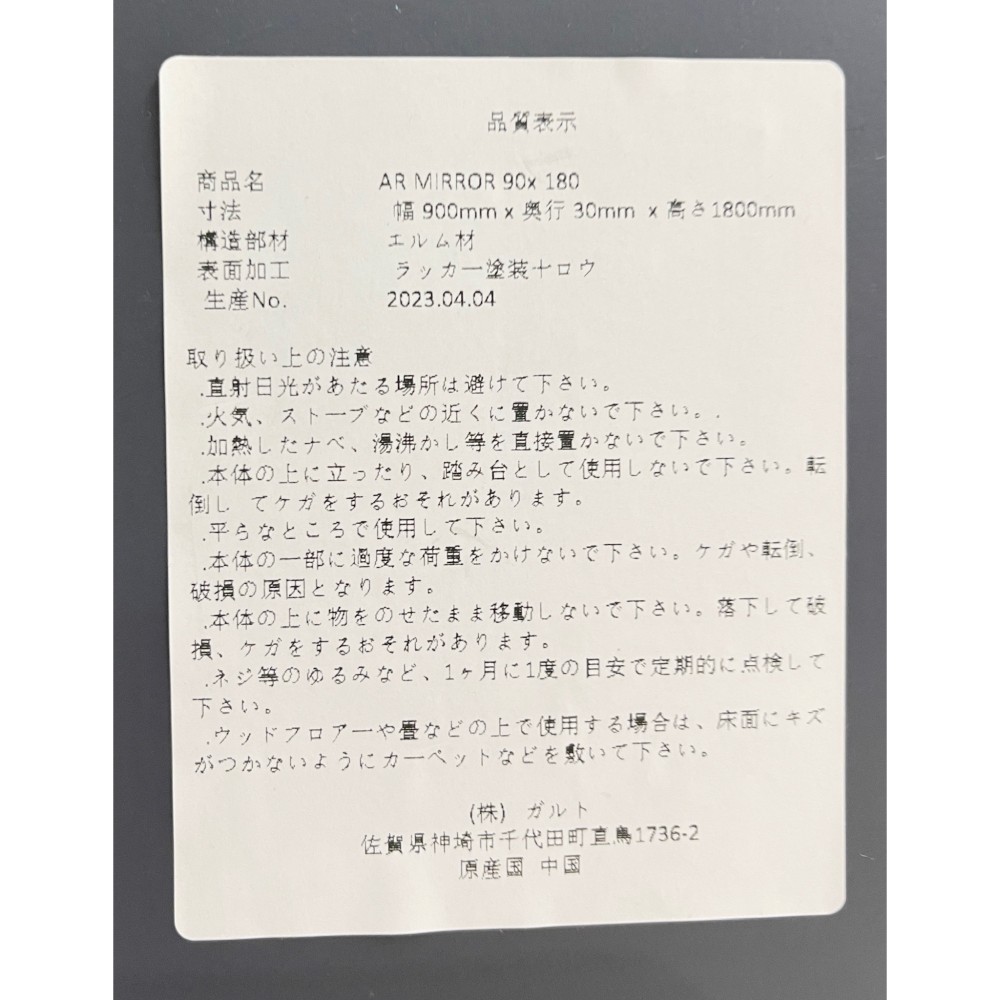 品質表示
商品名 AR MIRROR 90x 180
寸法 幅 900mm x 奥行 30mm x 高さ1800mm
構造部材 エルム材
表面加工 ラッカー塗装+ロウ
生産No. 2023.04.04
取り扱い上の注意
.直射日光があたる場所は避けて下さい。
.火気、ストーブなどの近くに置かないで下さい。.
.加熱したナベ、湯沸かし等を直接置かないで下さい。
.本体の上に立ったり、踏み台として使用しないで下さい。転
倒し てケガをするおそれがあります。
.平らなところで使用して下さい。
.本体の一部に過度な荷重をかけないで下さい。ケガや転倒、
破損の原因となります。
.本体の上に物をのせたまま移動しないで下さい。落下して破
損、ケガをするおそれがあります。
.ネジ等のゆるみなど、1ヶ月に1度の目安で定期的に点検して
下さい。
.ウッドフロアーや畳などの上で使用する場合は、床面にキズ
がつかないようにカーペットなどを敷いて下さい。
(株) ガルト
佐賀県神埼市千代田町直鳥1736-2
原産国 中国